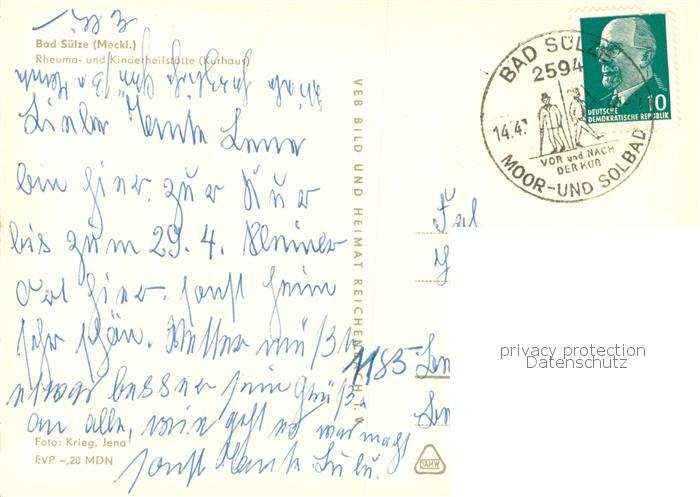 Bad Sülze (Meckl.)
Rheuma- und Kinderheilstätte (Kurhaus)
Liebe Tante Lena
bin hier zur Kur
bis zum 29.4. Kleiner
Ort hier. sonst
sehr schön. Wetter müßte
etwas besser sein Grüße
an alle, wie geht es was macht
sonst Tante Lulu.
Foto: Krieg, Jena
EVP -,20 MDN
VEB BILD UND HEIMAT REICHEN
BAD SÜLZE
2594
14.4.
VOR und NACH
DER KUR
MOOR-UND SOLBAD
DEUTSCHE
DEMOKRATISCHE REPUBLIK
10
1185
DAMW
privacy protection
Datenschutz